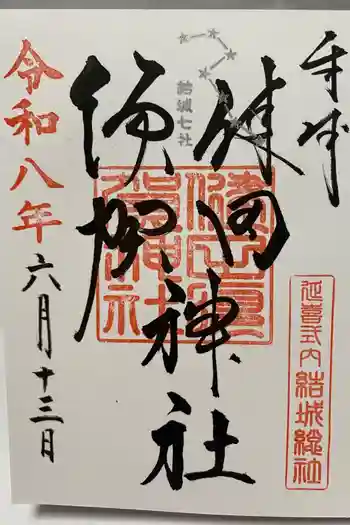 奉拝
健田
須賀
神社
結城七社
延喜式内 結城総社
令和八年
六月十三日